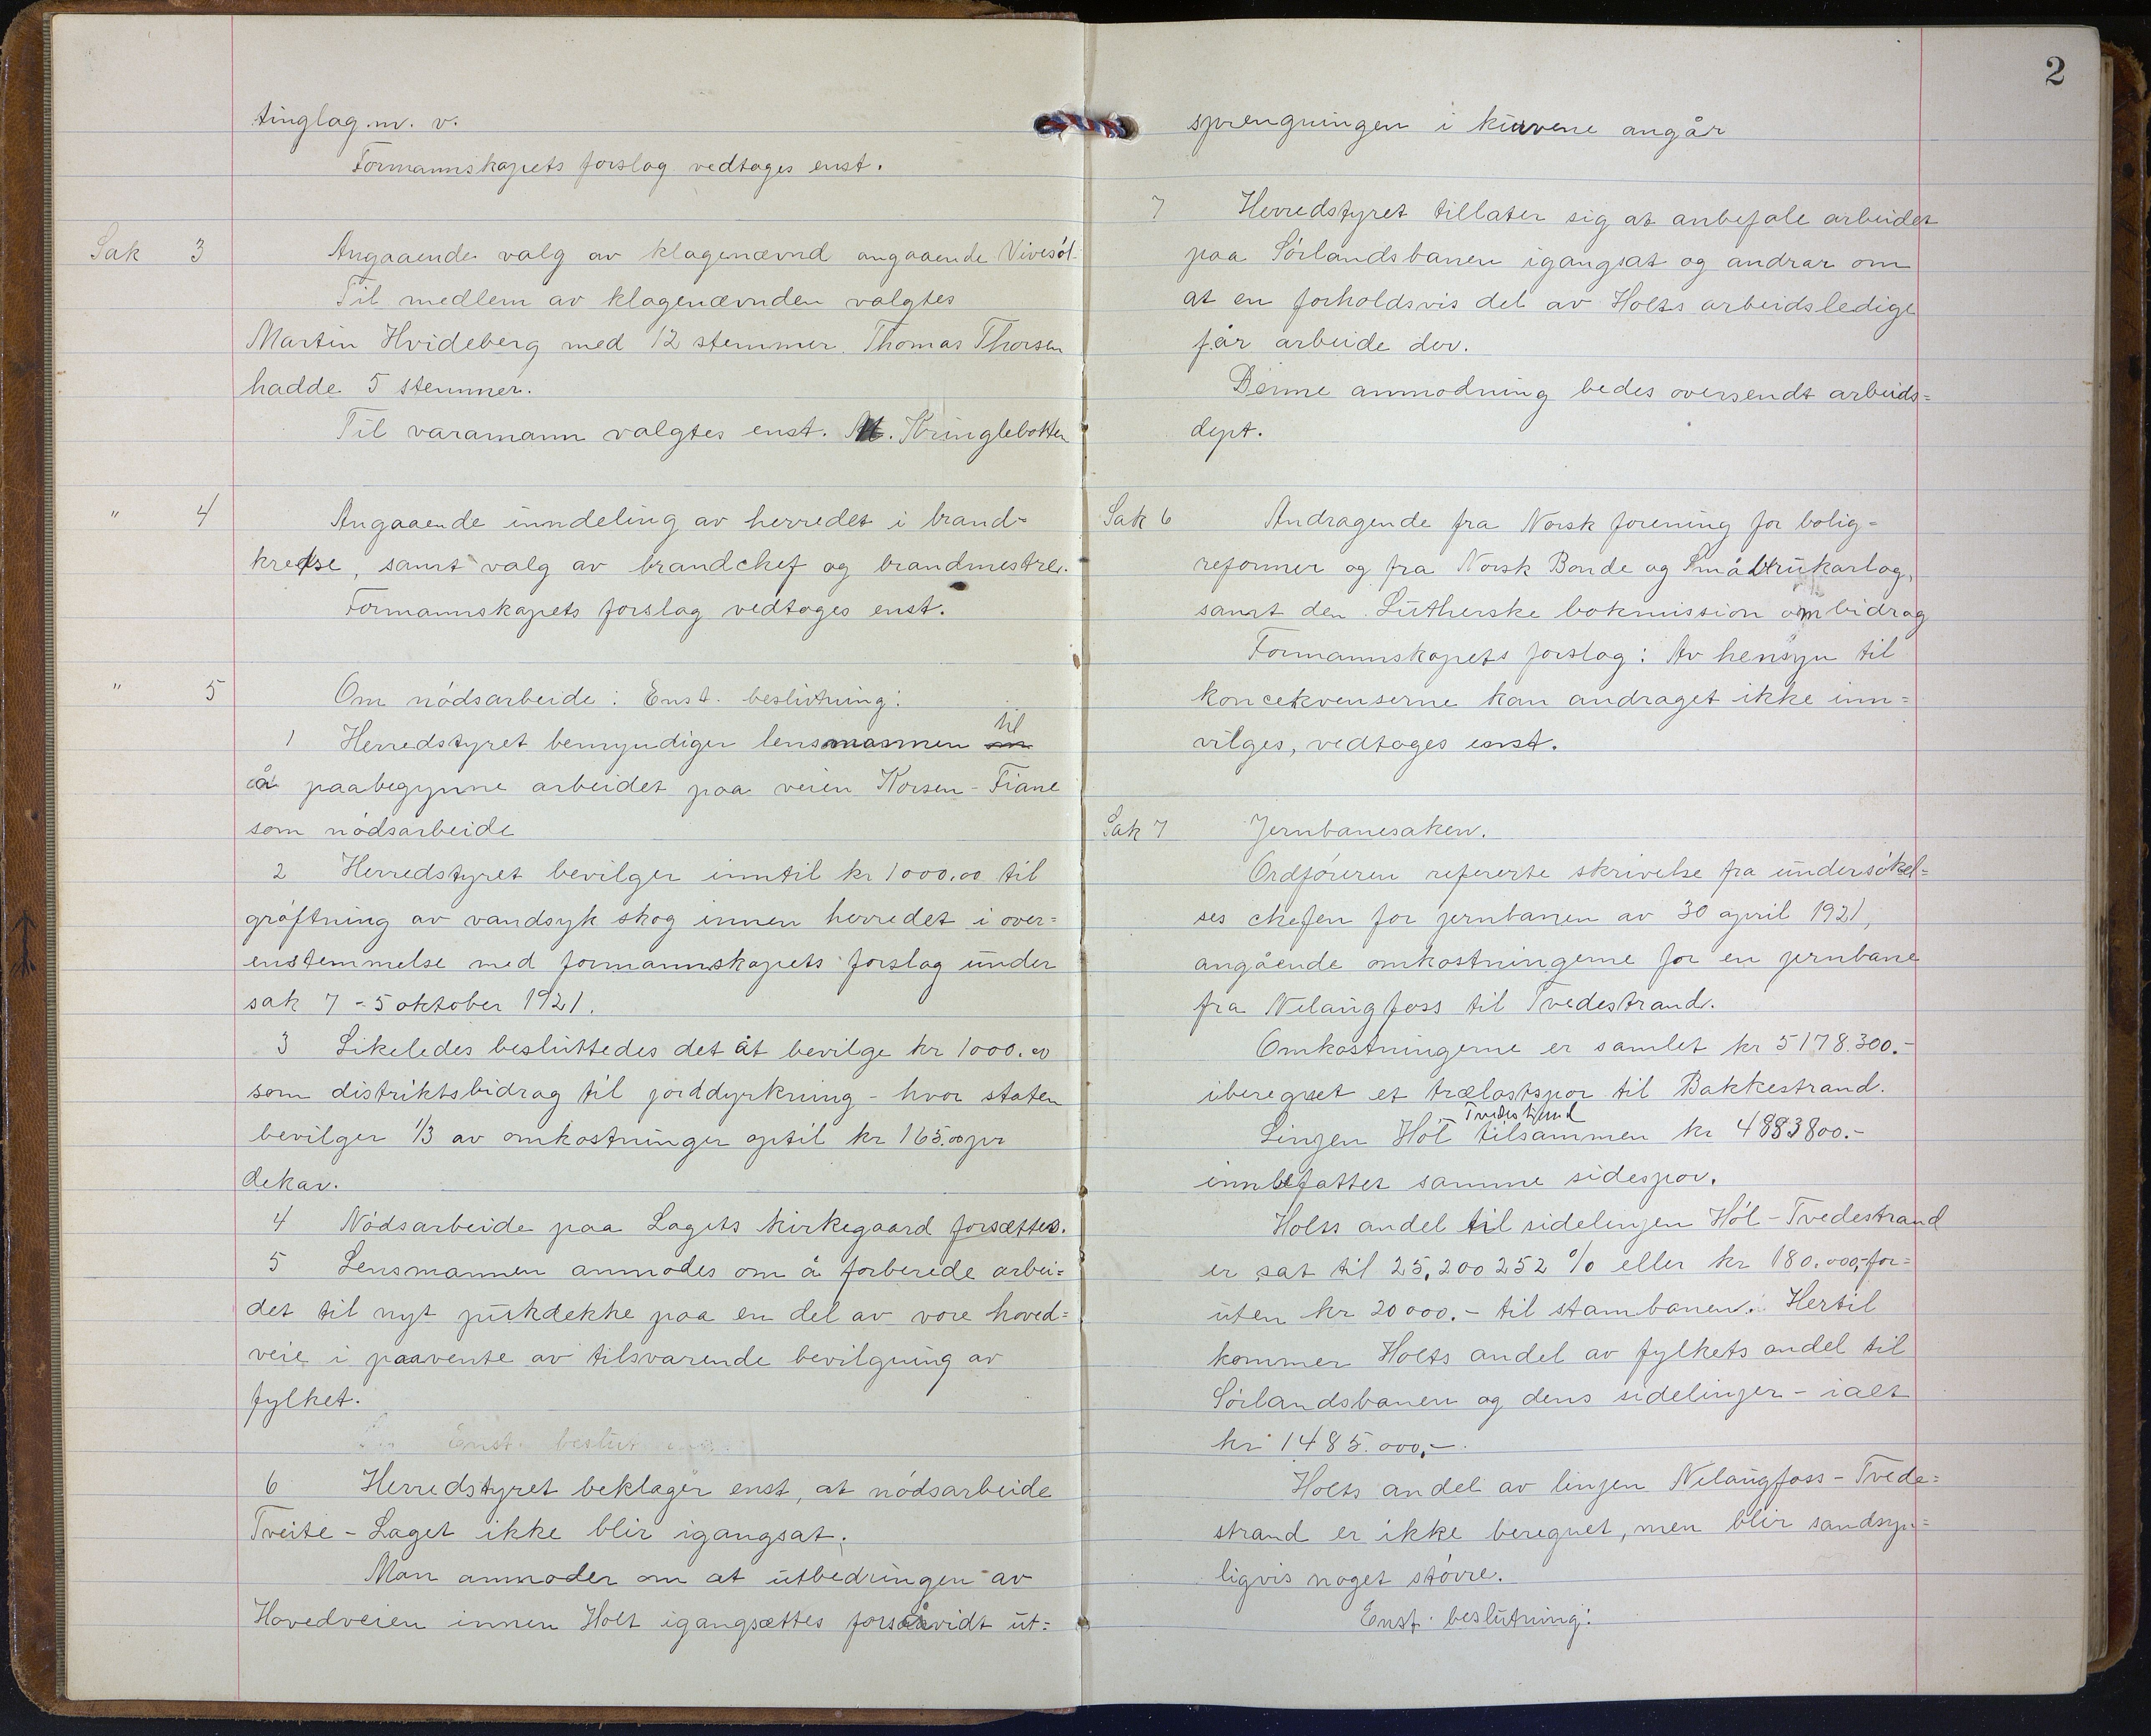 tinglag m. v.
Formannskapets forslag vedtages enst.
Sak 3 Angaaende valg av klagenævnd angaaende Vivesøl.
Til medlem av klagenævnden valgtes
Martin Hvideberg med 12 stemmer. Thomas Thorsen
hadde 5 stemmer.
Til varamann valgtes enst. M. Kringlebotten
" 4 Angaaende inndeling av herredet i brand=
kredse, samt valg av brandchef og brandmestre.
Formannskapets forslag vedtages enst.
" 5 Om nödsarbeide: Enst. beslutning:
1 Herredstyret bemyndiger lensmannen til
å paabegynne arbeidet paa veien Korsen - Fiane
som nödsarbeide
2 Herredstyret bevilger inntil kr 1000.00 til
gröftning av vandsyk skog innen herredet i over=
enstemmelse med formannskapets forslag under
sak 7 - 5 oktober 1921.
3 Likeledes besluttedes det åt bevilge kr 1000.00
som distriktsbidrag til jorddyrkning - hvor staten
bevilger 1/3 av omkostninger optil kr 165.00 pr
dekar.
4 Nödsarbeide paa Lagets kirkegaard forsættes.
5 Lensmannen anmodes om å forberede arbei=
det til nyt pukdekke paa en del av vore hoved=
veie i paavente av tilsvarende bevilgning av
fylket.
Enst. beslut
6 Herredstyret beklager enst, at nödsarbeide
Tveite - Laget ikke blir igangsat.
Man anmoder om at utbedringen av
Hovedveien innen Holt igangsættes forsåvidt ut=
2
sprengningen i kurvene angår
7 Herredstyret tillater sig at anbefale arbeidet
paa Sörlandsbanen igangsat og andrar om
at en forholdsvis del av Holts arbeidsledige
får arbeide der.
Denne anmodning bedes oversendt arbeids=
dept.
Sak 6 Andragende fra Norsk forening for bolig=
reformer og fra Norsk Bonde og Småbrukarlag,
samt den Lutherske bokmission om bidrag
Formannskapets forslag: Av hensyn til
koncekvenserne kan andraget ikke inn=
vilges, vedtages enst.
Sak 7 Jernbanesaken.
Ordföreren refererte skrivelse fra undersökel=
ses chefen for jernbanen av 30 april 1921,
angående omkostningerne for en jernbane
fra Nelaugfoss til Tvedestrand.
Omkostningerne er samlet kr 5178.300.-
iberegnet et trælastspor til Bakkestrand.
Tvedestrand
Linjen Höl tilsammen kr 4883800.-
innbefattet samme sidespor.
Holts andel til sidelinjen Höl - Tvedestrand
er sat til 25,200252 % eller kr 180.000,- for=
uten kr 20000.- til stambanen. Hertil
kommer Holts andel av fylkets andel til
Sörlandsbanen og dens sidelinjer - ialt
kr 1485.000,-.
Holts andel av linjen Nelaugfoss - Tvede=
strand er ikke beregnet, men blir sandsyn=
ligvis noget større.
Enst. beslutning: